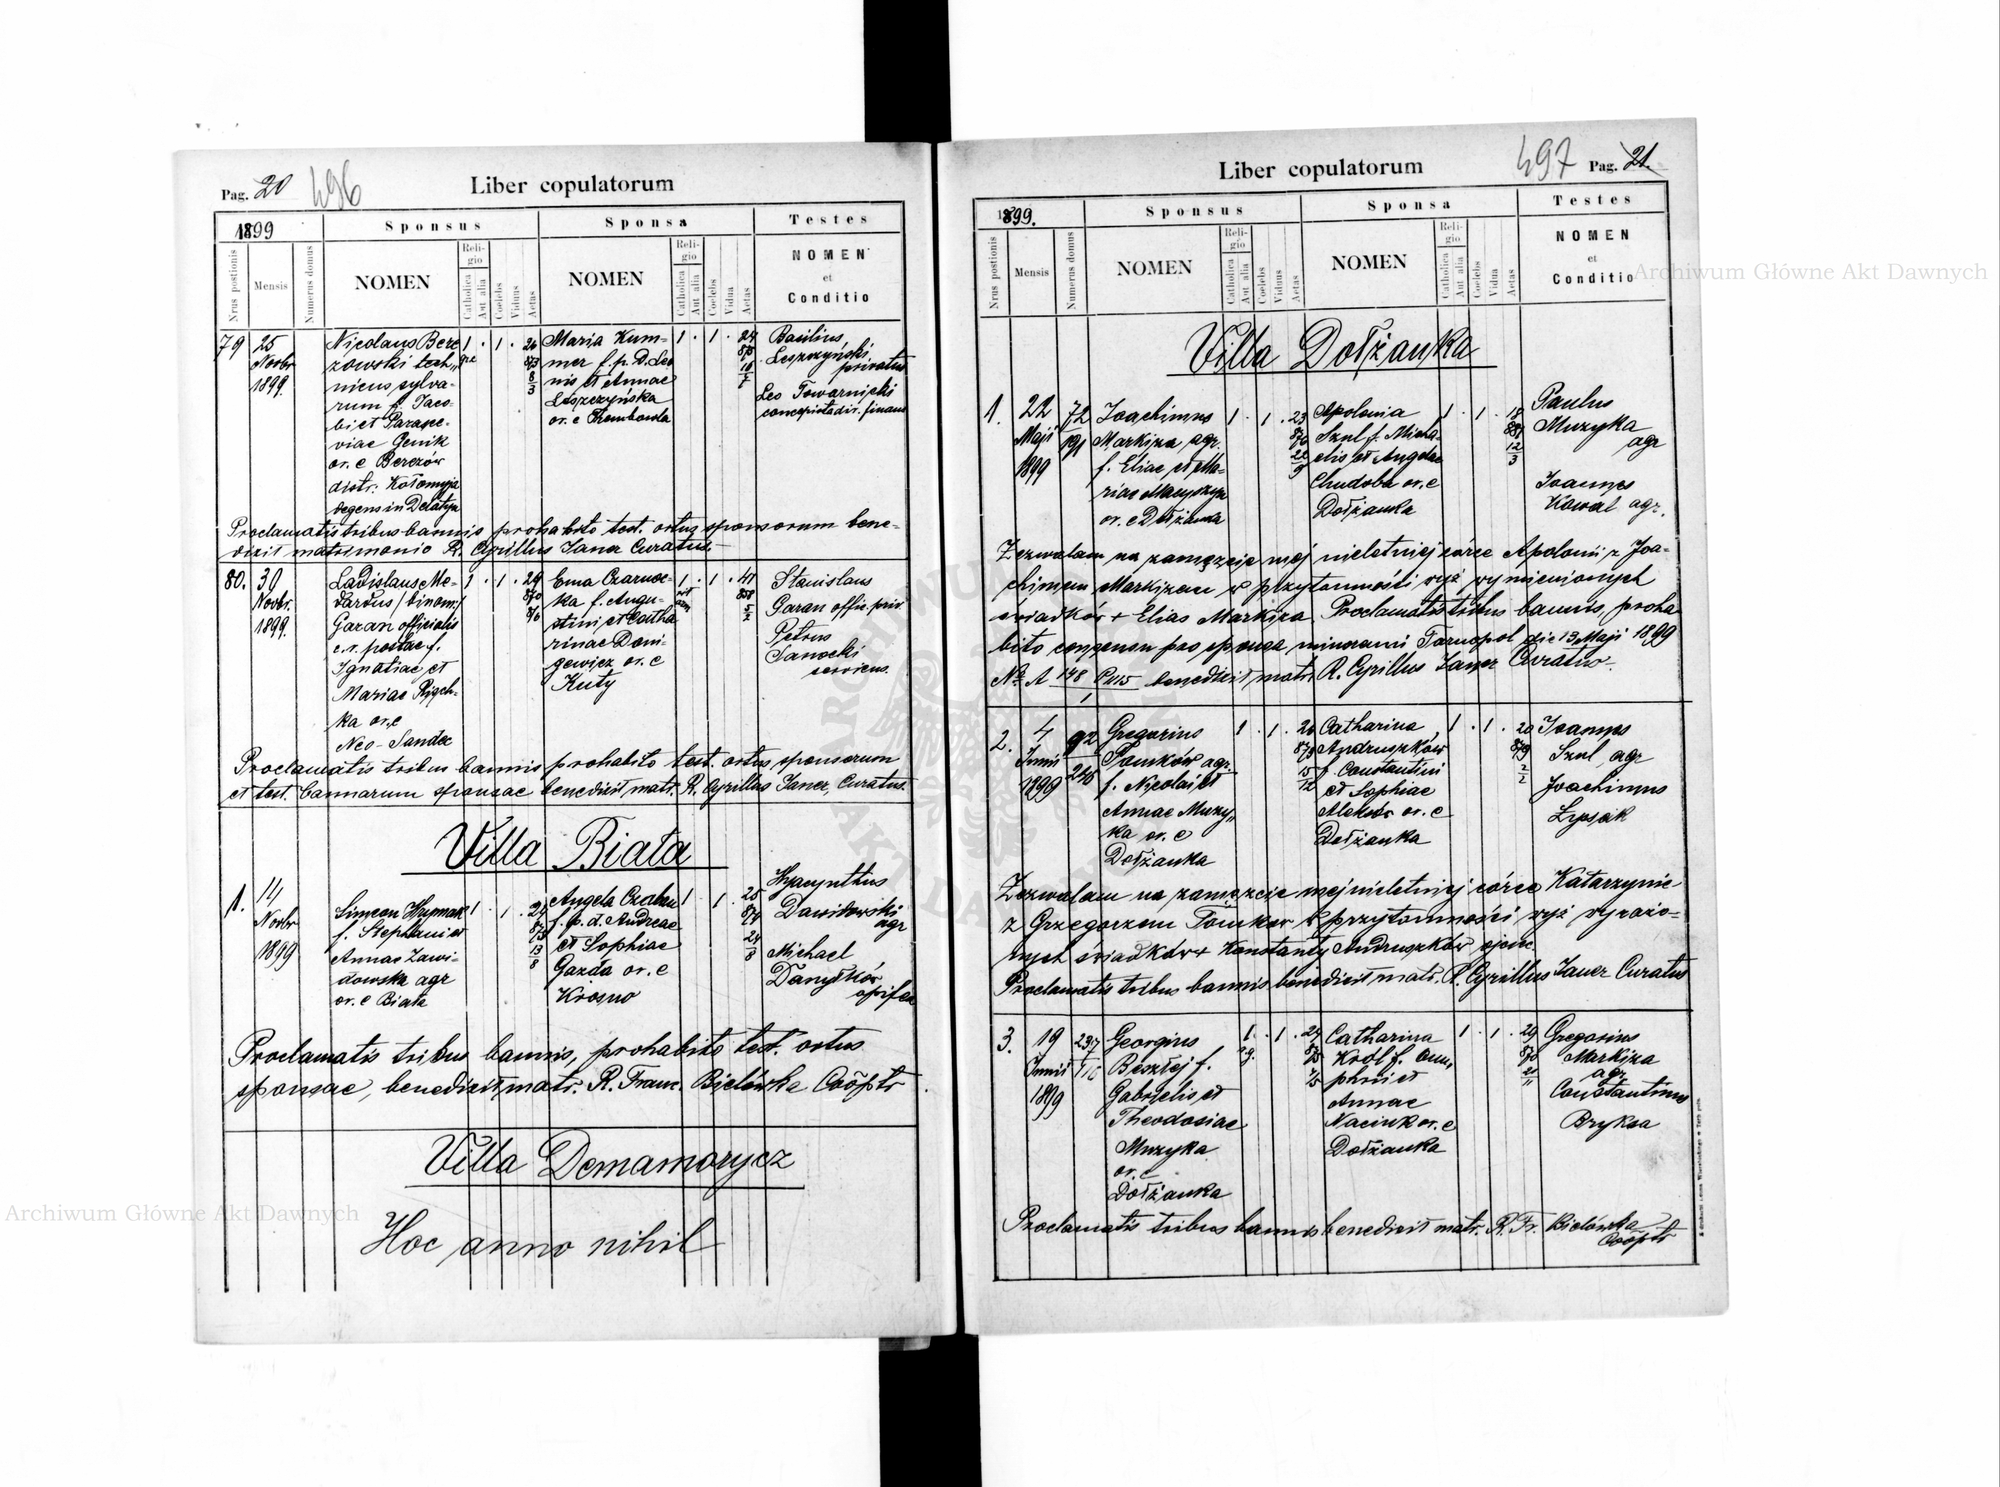 Pag. 20 496
Liber copulatorum
1899
Sponsus
Sponsa
Testes
Nrus postionis
Mensis
Numerus domus
NOMEN
Religio
Catholica
Aut alia
Coelebs
Viduus
Aetas
NOMEN
Religio
Catholica
Aut alia
Coelebs
Vidua
Aetas
NOMEN
et
Conditio
79 25 Novbr 1899.
Nicolaus Bere
zowski tech„
nicus sylva-
rum f. Jaco-
bi et Parasce-
viae Genik
or. e Berezów
distr: Kołomyja
degens in Delatyn
1 . 1 . 26
Maria Kum-
mer f. p. D. Leo
nis et Annae
Leszczyńska
or. e Trembowla
1 . 1 . 24
Basilius
Leszczyński
privatus
Leo Towarnicki
concepista dir. finans
Proclamatis tribus bannis, prohabito test. ortus sponsorum bene-
dixit matrimonio R. Cyrillus Janer Curatus.
80. 30 Novbr. 1899.
Ladislaus Me-
dardus /binom:/
Garan officialis
c. r. postae f.
Ignatiae et
Mariae
ka or. e
Neo-Sandec
1 . 1 . 29
Ema Czarnec-
ka f. Augu-
stini et Catha
rinae Doni-
gewicz or. e
Kuty
1 . 1 . 41
Stanislaus
Garan offic. priv.
Petrus
Sanocki
serviens.
Proclamatis tribus bannis prohabito test. ortus sponsorum
et test. bannorum sponsae benedixit matr. R. Cyrillus Janer, Curatus.
Villa Biała
1. 14 Novbr 1899
Simeon Hrymak
f. Stephani et
Annae Zawi-
dowska agr
or. e Biała
1 . 1 . 24
Angela Czaban
f. p. d. Andreae
et Sophiae
Gazda or. e
Krosno
1 . 1 . 25
Hyacynthus
Dawidowski
agr
Michael
Danyłków
opifex
Proclamatis tribus bannis, prohabito test. ortus
sponsae, benedixit matr. R. Franc. Bielówka Coöptr
Villa Demamorycz
Hoc anno nihil
Liber copulatorum
497 Pag. 21.
1899.
Sponsus
Sponsa
Testes
Nrus postionis
Mensis
Numerus domus
NOMEN
Religio
Catholica
Aut alia
Coelebs
Viduus
Aetas
NOMEN
Religio
Catholica
Aut alia
Coelebs
Vidua
Aetas
NOMEN
et
Conditio
Villa Dołżanka
1. 22 Maji 1899
72
191
Joachimus
Markiza agr.
f. Eliae et Ma-
riae
or. e Dołżanka
1 . 1 . 23
Apolonia
Szul f. Micha-
elis et Angelae
Chudoba or. e
Dołżanka
1 . 1 . 18
Paulus
Muzyka
agr
Joannes
Kowal agr.
Zezwalam na zamęzcie mej nieletniej córce Apolonii z Joa-
chimem Markizem w przytomności wyż wymienionych
świadków + Elias Markiza. Proclamatis tribus bannis, proha
bito consensu pro sponsa minorenni Tarnopol die 13 Maji 1899
No A 148 benedixit matr. R. Cyrillus Janer Curatus.
2. 4 Junii 1899
92
246
Gregorius
Tomków agr.
f. Nicolai et
Annae Muzy„
ka or. e
Dołżanka
1 . 1 . 20
Catharina
Andruszków
f. Constantini
et Sophiae
or. e
Dołżanka
1 . 1 . 20
Joannes
Szul agr
Joachimus
Lipsak
Zezwalam na zamęzcie mej nieletniej córce Katarzynie
z Grzegorzem Tomków w przytomności wyż wyrażo-
nych świadków + Konstanty Andruszków ojciec
Proclamatis tribus bannis benedixit matr. R. Cyrillus Janer Curatus
3. 19 Junii 1899
237
Georgius
f.
Gabrielis et
Theodosiae
Muzyka
or. e
Dołżanka
1. . 1 . 24
Catharina
Król f. Onu„
phrii et
Annae
or. e
Dołżanka
1 . 1 . 29
Gregorius
Markiza
agr
Constantinus
Bryksa
Proclamatis tribus bannis benedixit matr. R. Fr. Bielówka
Coöptr
Archiwum Główne Akt Dawnych
Archiwum Główne Akt Dawnych